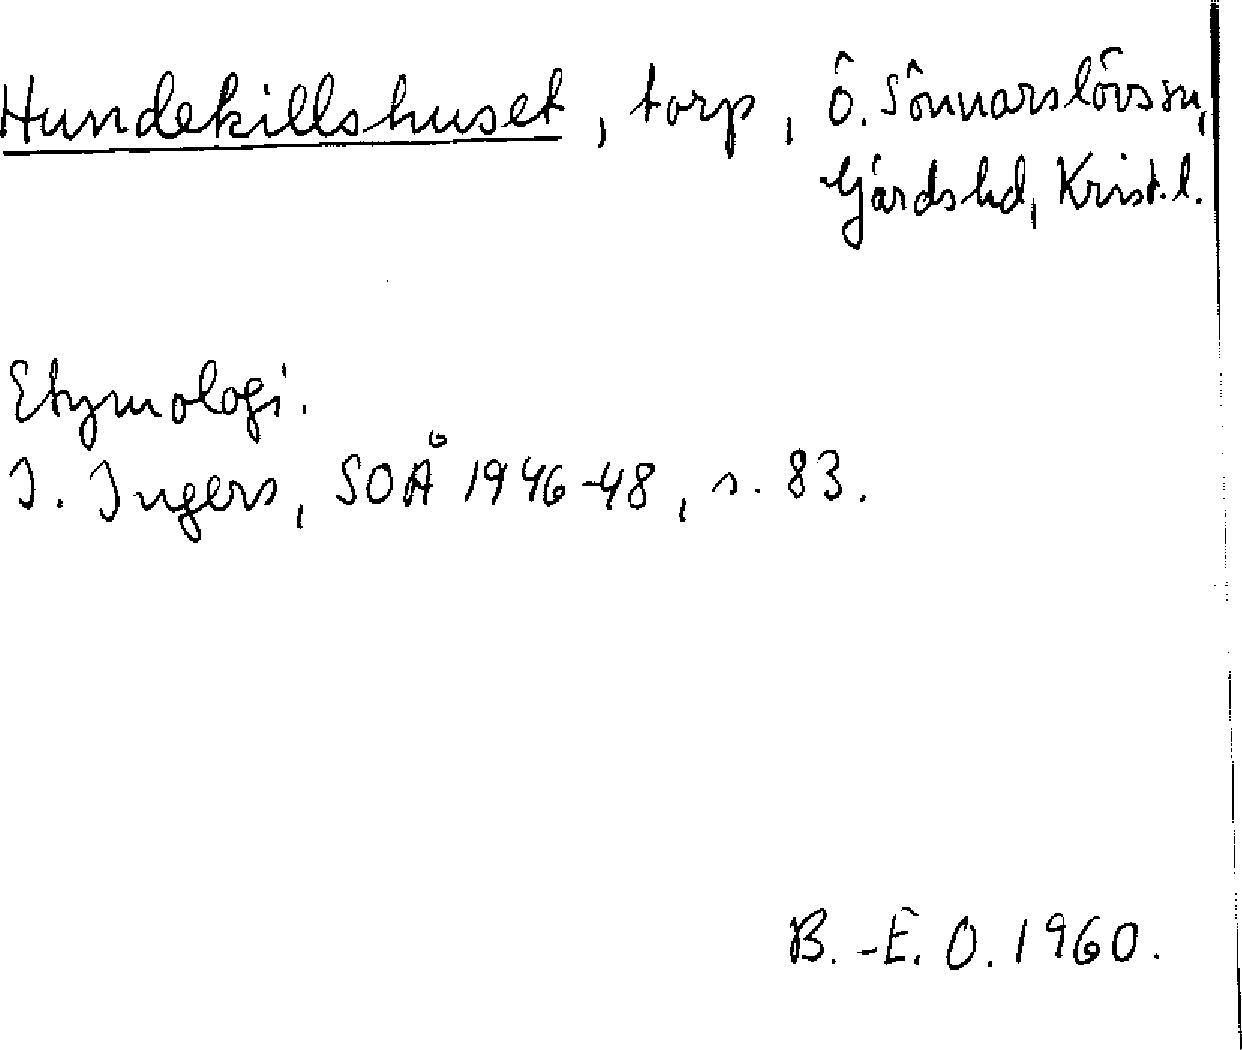 Hundekillshuset, torp, Ö. Sönnarslövs sn,
Gärds hd, Krist. l.
Etymologi.
I. Ingers, SOÅ 1946-48, s. 83.
B.-E. O. 1960.